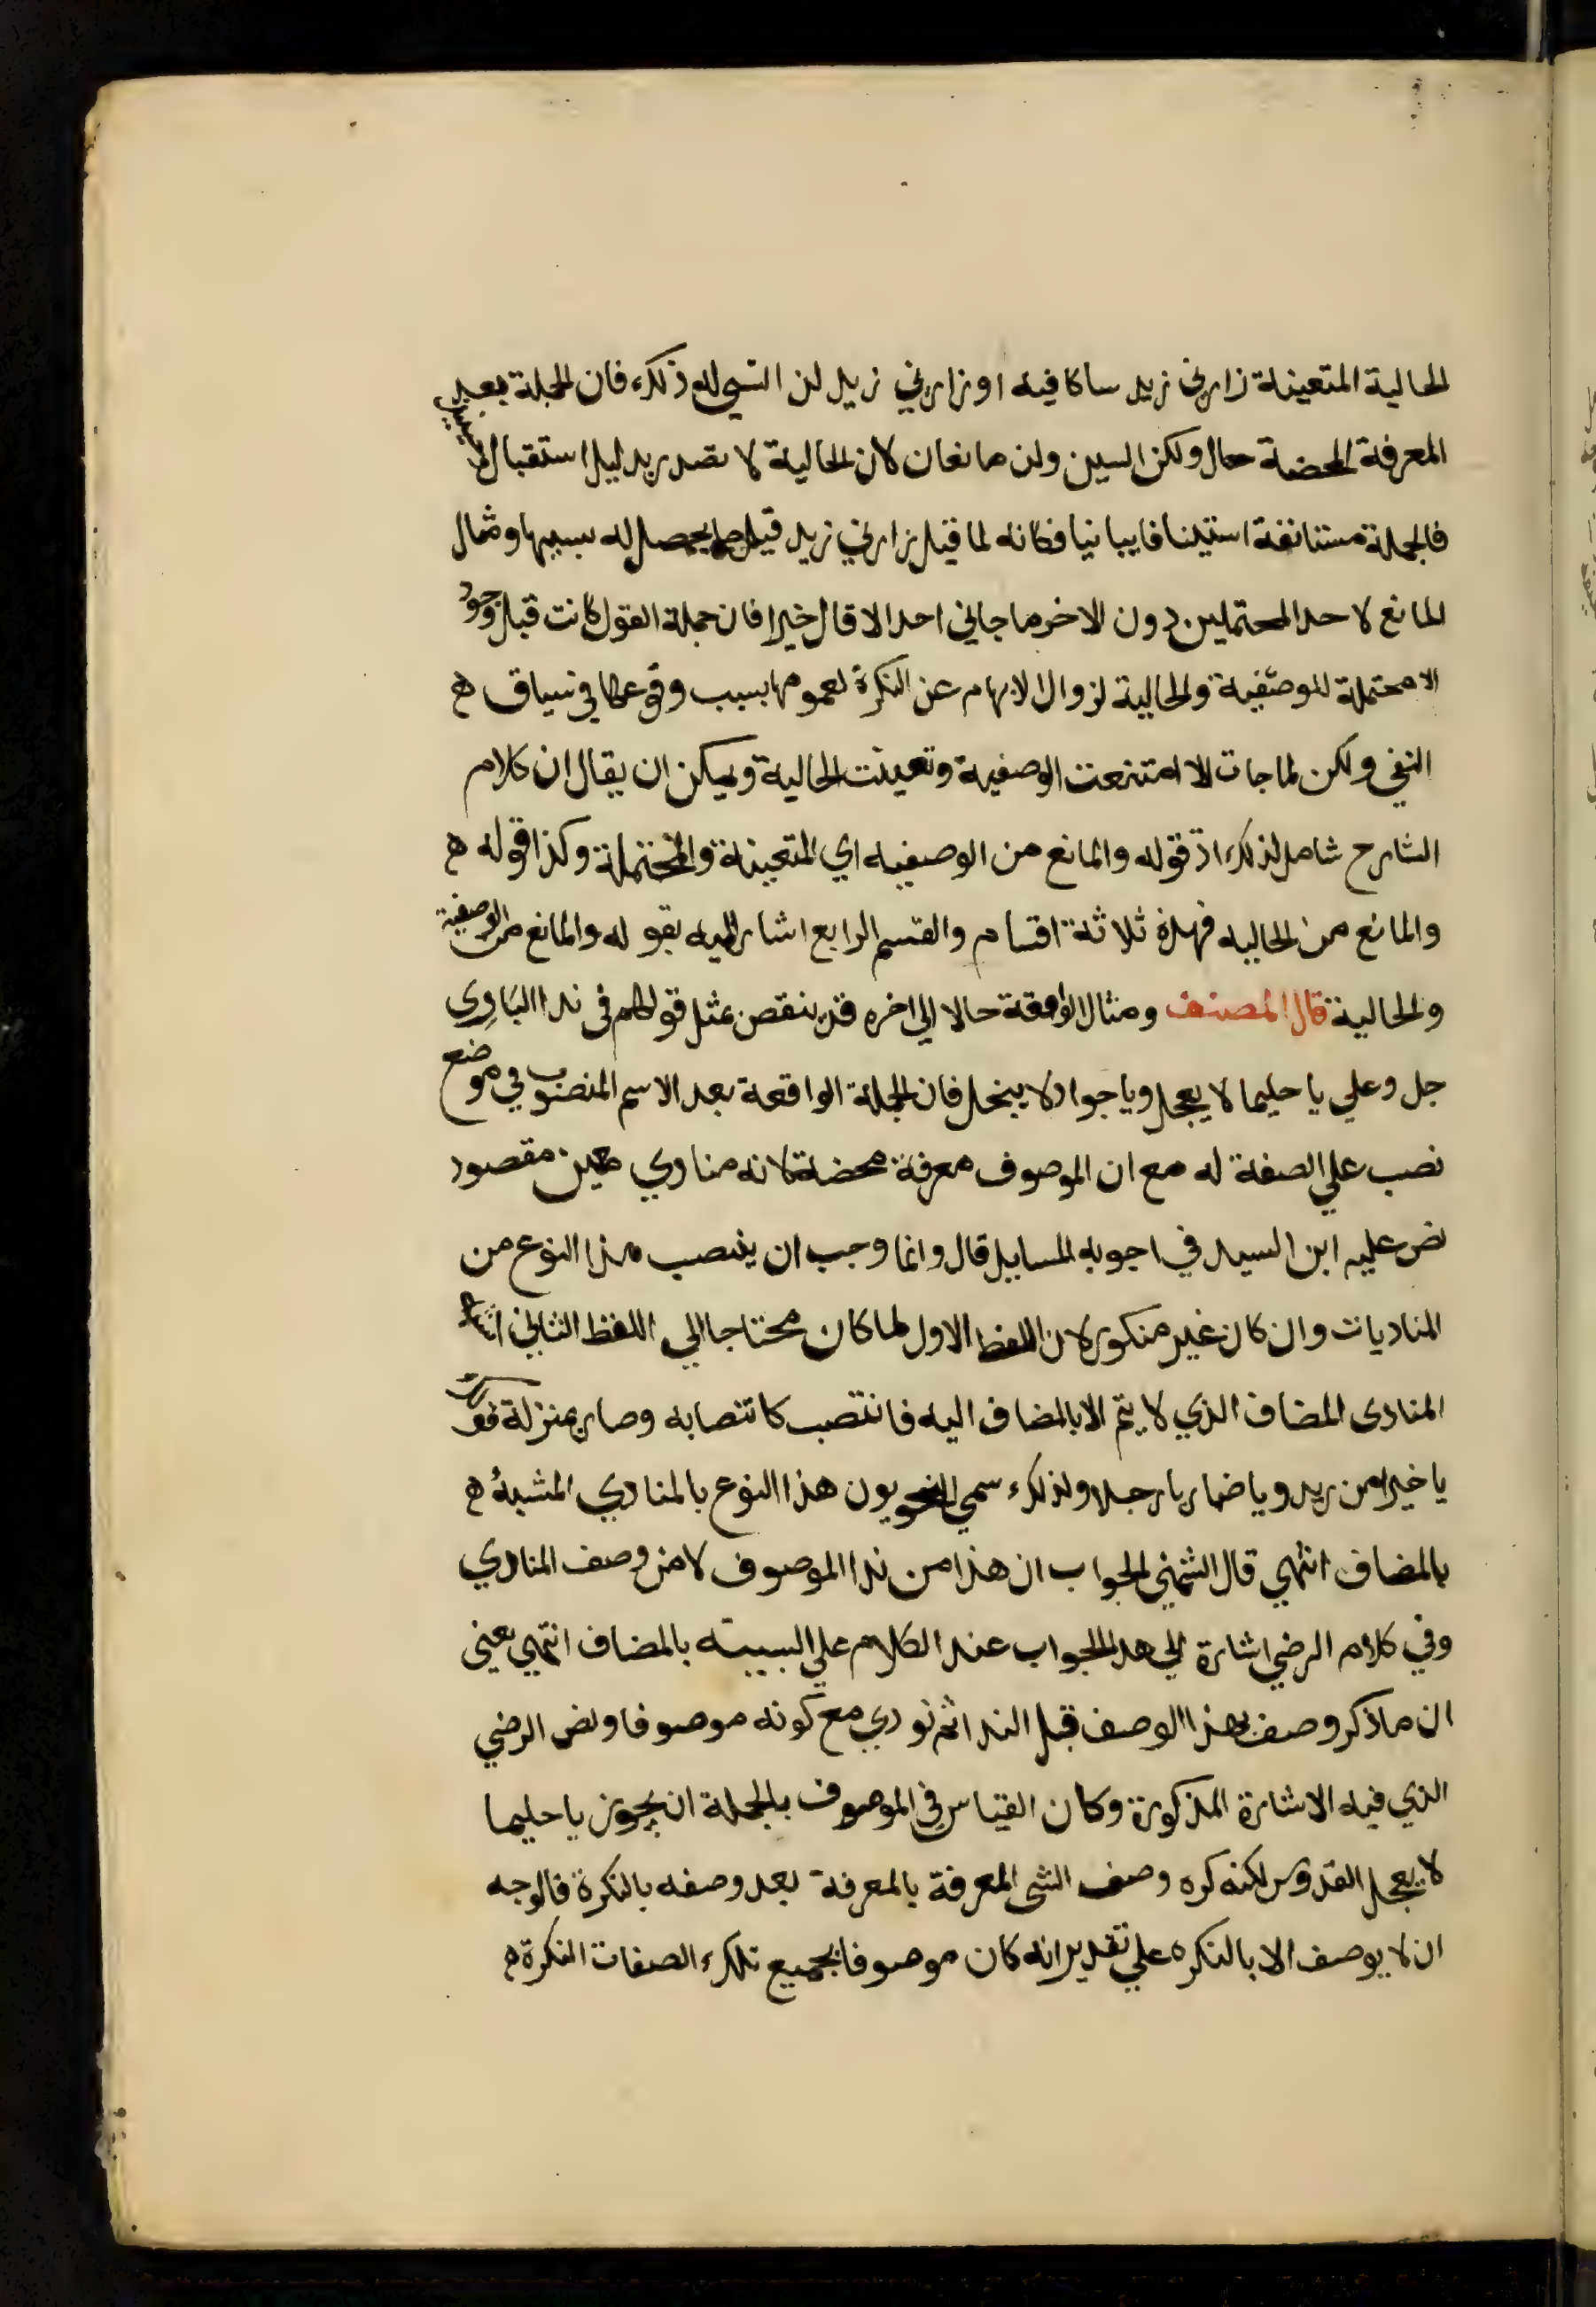 الحالية المتعينة زارني زيد ساكافيه او زارني زيد لن انسي له ذلك فان الجملة بعد
المعرفة المحضة حال ولكن السين ولن مانعان لان الحالية لا تصدر بدليل استقبال
فالجملة مستانفة استينافا بيانيا فكانه لما قيل زارني زيد قيل ما يحصل له بسببها ومثال
المانع لاحد المحتملين دون الاخر ما جاني احد الا قال خيرا فان جملة القول كانت قبل وجود
الا محتملة للوصفية والحالية لزوال الابهام عن النكرة لعمومها بسبب وقوعها في سياق ه
النفي ولكن لما جات الا امتنعت الوصفية وتعينت الحالية ويمكن ان يقال ان كلام
الشارح شامل لذلك اذ قوله والمانع من الوصفيه اي المتعينة والمحتملة وكذا قوله ه
والمانع من الحاليه فهذه ثلاثة اقسام والقسم الرابع اشار اليه بقوله والمانع من الوصفية
والحالية قال المصنف ومثال الواقعة حالا الي اخره قد ينقض بمثل قولهم في ندا الباري
جل وعلي يا حليما لا يعجل ويا جوادا لا يبخل فان الجملة الواقعة بعد الاسم المنصوب في موضع
نصب علي الصفة له مع ان الموصوف معرفة محضة لانه منادي معين مقصود
نص عليه ابن السيد في اجوبه المسايل قال وانما وجب ان ينصب هذا النوع من
المناديات وان كان غير منكور لان اللفظ الاول لما كان محتاجا الي اللفظ الثاني اشبه
المنادى المضاف الذي لا يتم الا بالمضاف اليه فانتصب كانتصابه وصار بمنزلة قولك
يا خيرا من زيد ويا ضاربا رجلا ولذلك سمي النحويون هذا النوع بالمنادي المشبه ه
بالمضاف انتهي قال الشمني الجواب ان هذا من ندا الموصوف لا من وصف المنادي
وفي كلام الرضي اشارة الي هذا الجواب عند الكلام علي الشبيه بالمضاف انتهي يعني
ان ما ذكر وصف بهذا الوصف قبل الندا ثم نودي مع كونه موصوفا ونص الرضي
الذي فيه الاشارة المذكورة وكان القياس في الموصوف بالجملة ان يجوز يا حليما
لا يعجل القدوس لكنه كره وصف الشي المعرفة بالمعرفة بعد وصفه بالنكرة فالوجه
ان لا يوصف الا بالنكره علي تقدير انه كان موصوفا بجميع تلك الصفات النكرة ه